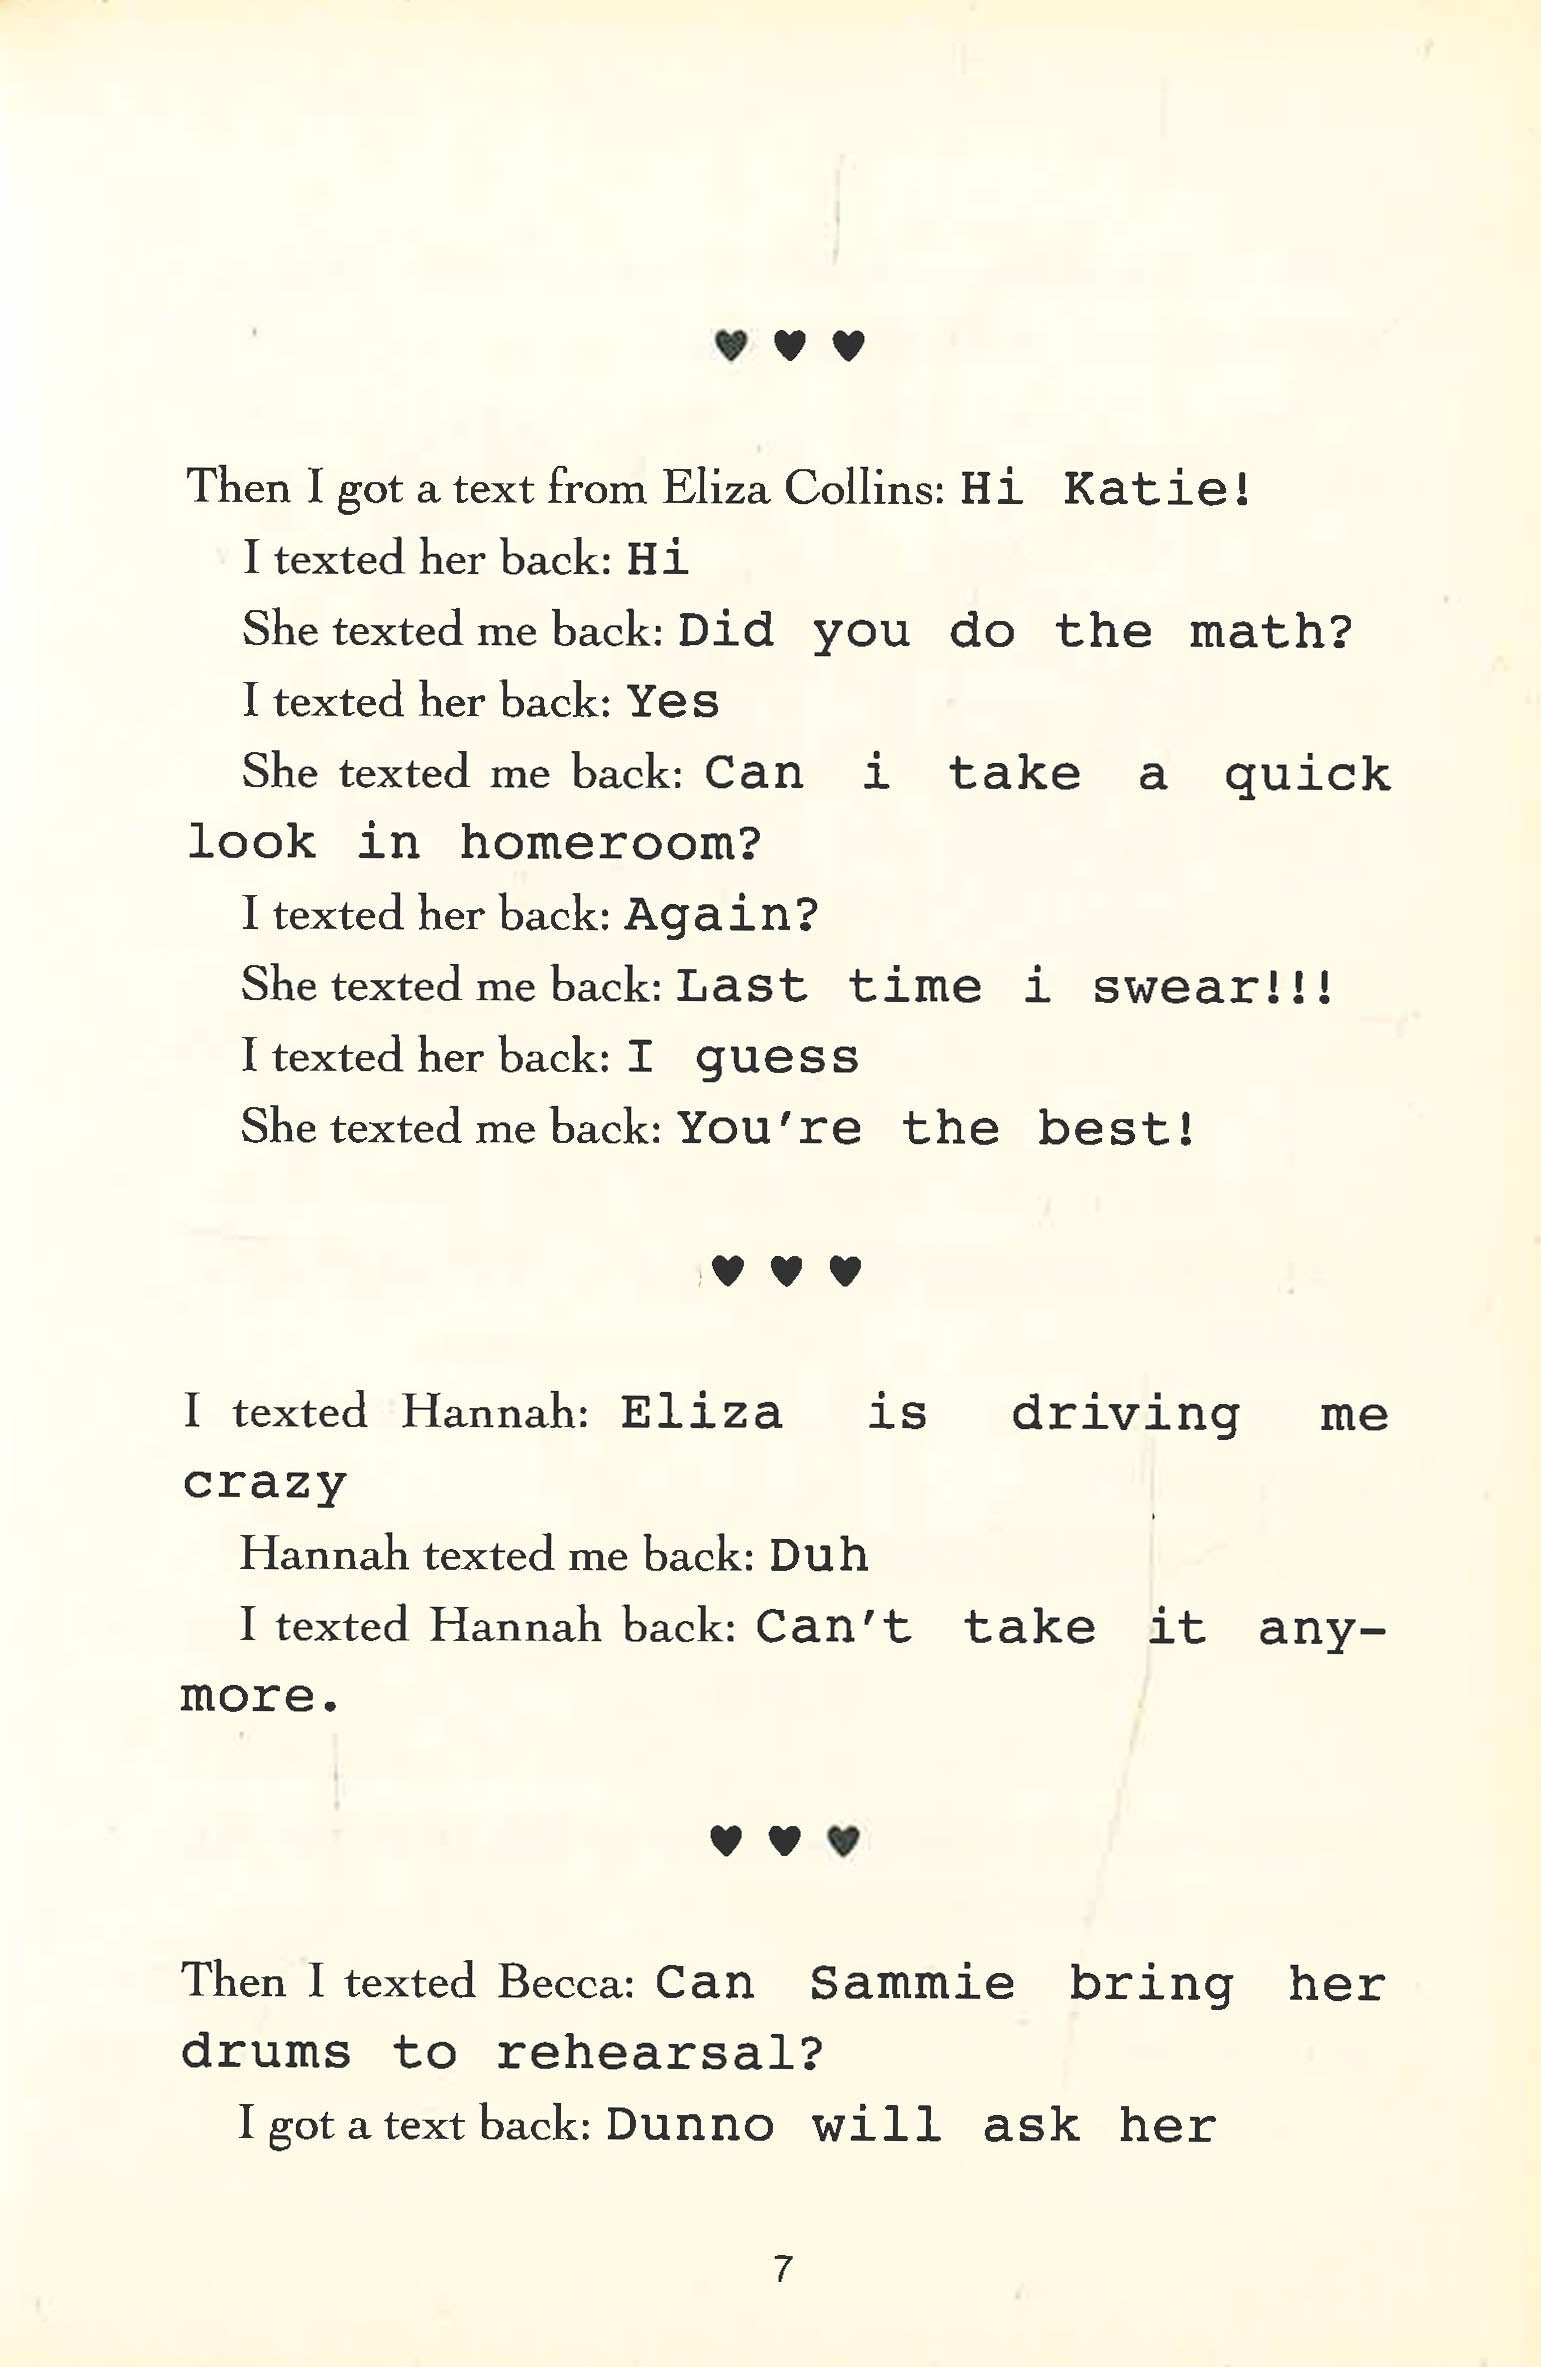 ♥ ♥ ♥
Then I got a text from Eliza Collins: Hi Katie!
I texted her back: Hi
She texted me back: Did you do the math?
I texted her back: Yes
She texted me back: Can i take a quick
look in homeroom?
I texted her back: Again?
She texted me back: Last time i swear!!!
I texted her back: I guess
She texted me back: You're the best!
♥ ♥ ♥
I texted Hannah: Eliza is driving me
crazy
Hannah texted me back: Duh
I texted Hannah back: Can't take it any-
more.
♥ ♥ ♥
Then I texted Becca: Can Sammie bring her
drums to rehearsal?
I got a text back: Dunno will ask her
7